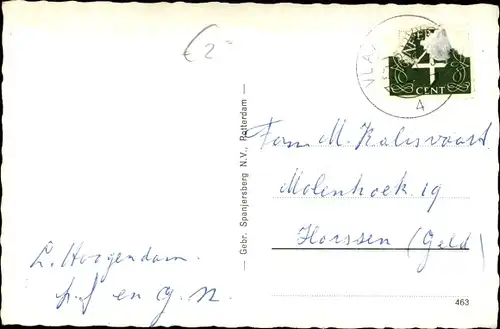 € 2=
VLA
NEDERLAND
4
CENT
4
Gebr. Spanjersberg N.V., Rotterdam
Fam M. Kalisvaard
Molenhoek 19
Horssen (Geld)
L. Hoogendam.
p.f en G. N.
463